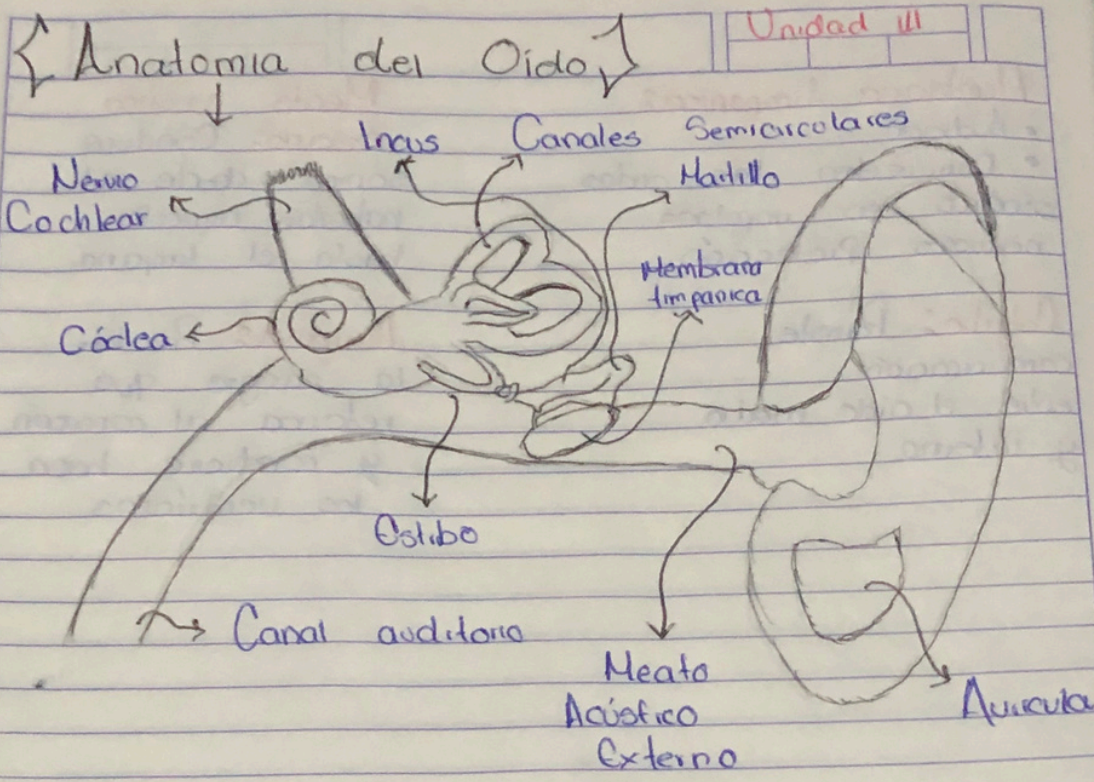 {Anatomia del Oido}
Unidad III
Incus
Canales Semicirculares
Nervio
Cochlear
Martillo
Membrana
timpanica
Cóclea
Estribo
Canal auditorio
Meato
Acústico
Externo
Auricula